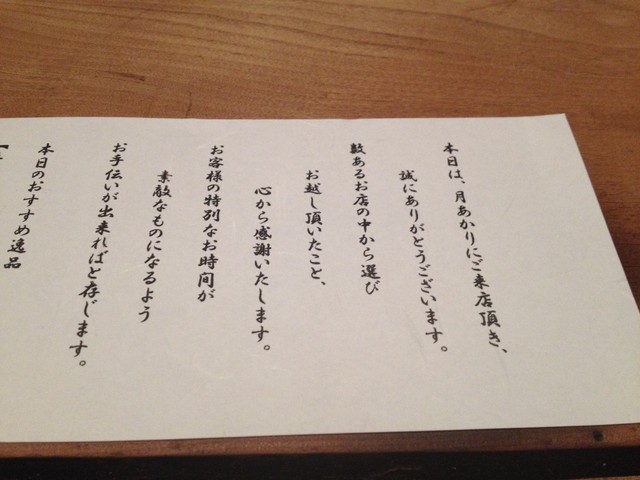 本日は、月あかりにご来店頂き、
誠にありがとうございます。
数あるお店の中から選び
お越し頂いたこと、
心から感謝いたします。
お客様の特別なお時間が
素敵なものになるよう
お手伝いが出来ればと存じます。
本日のおすすめ逸品